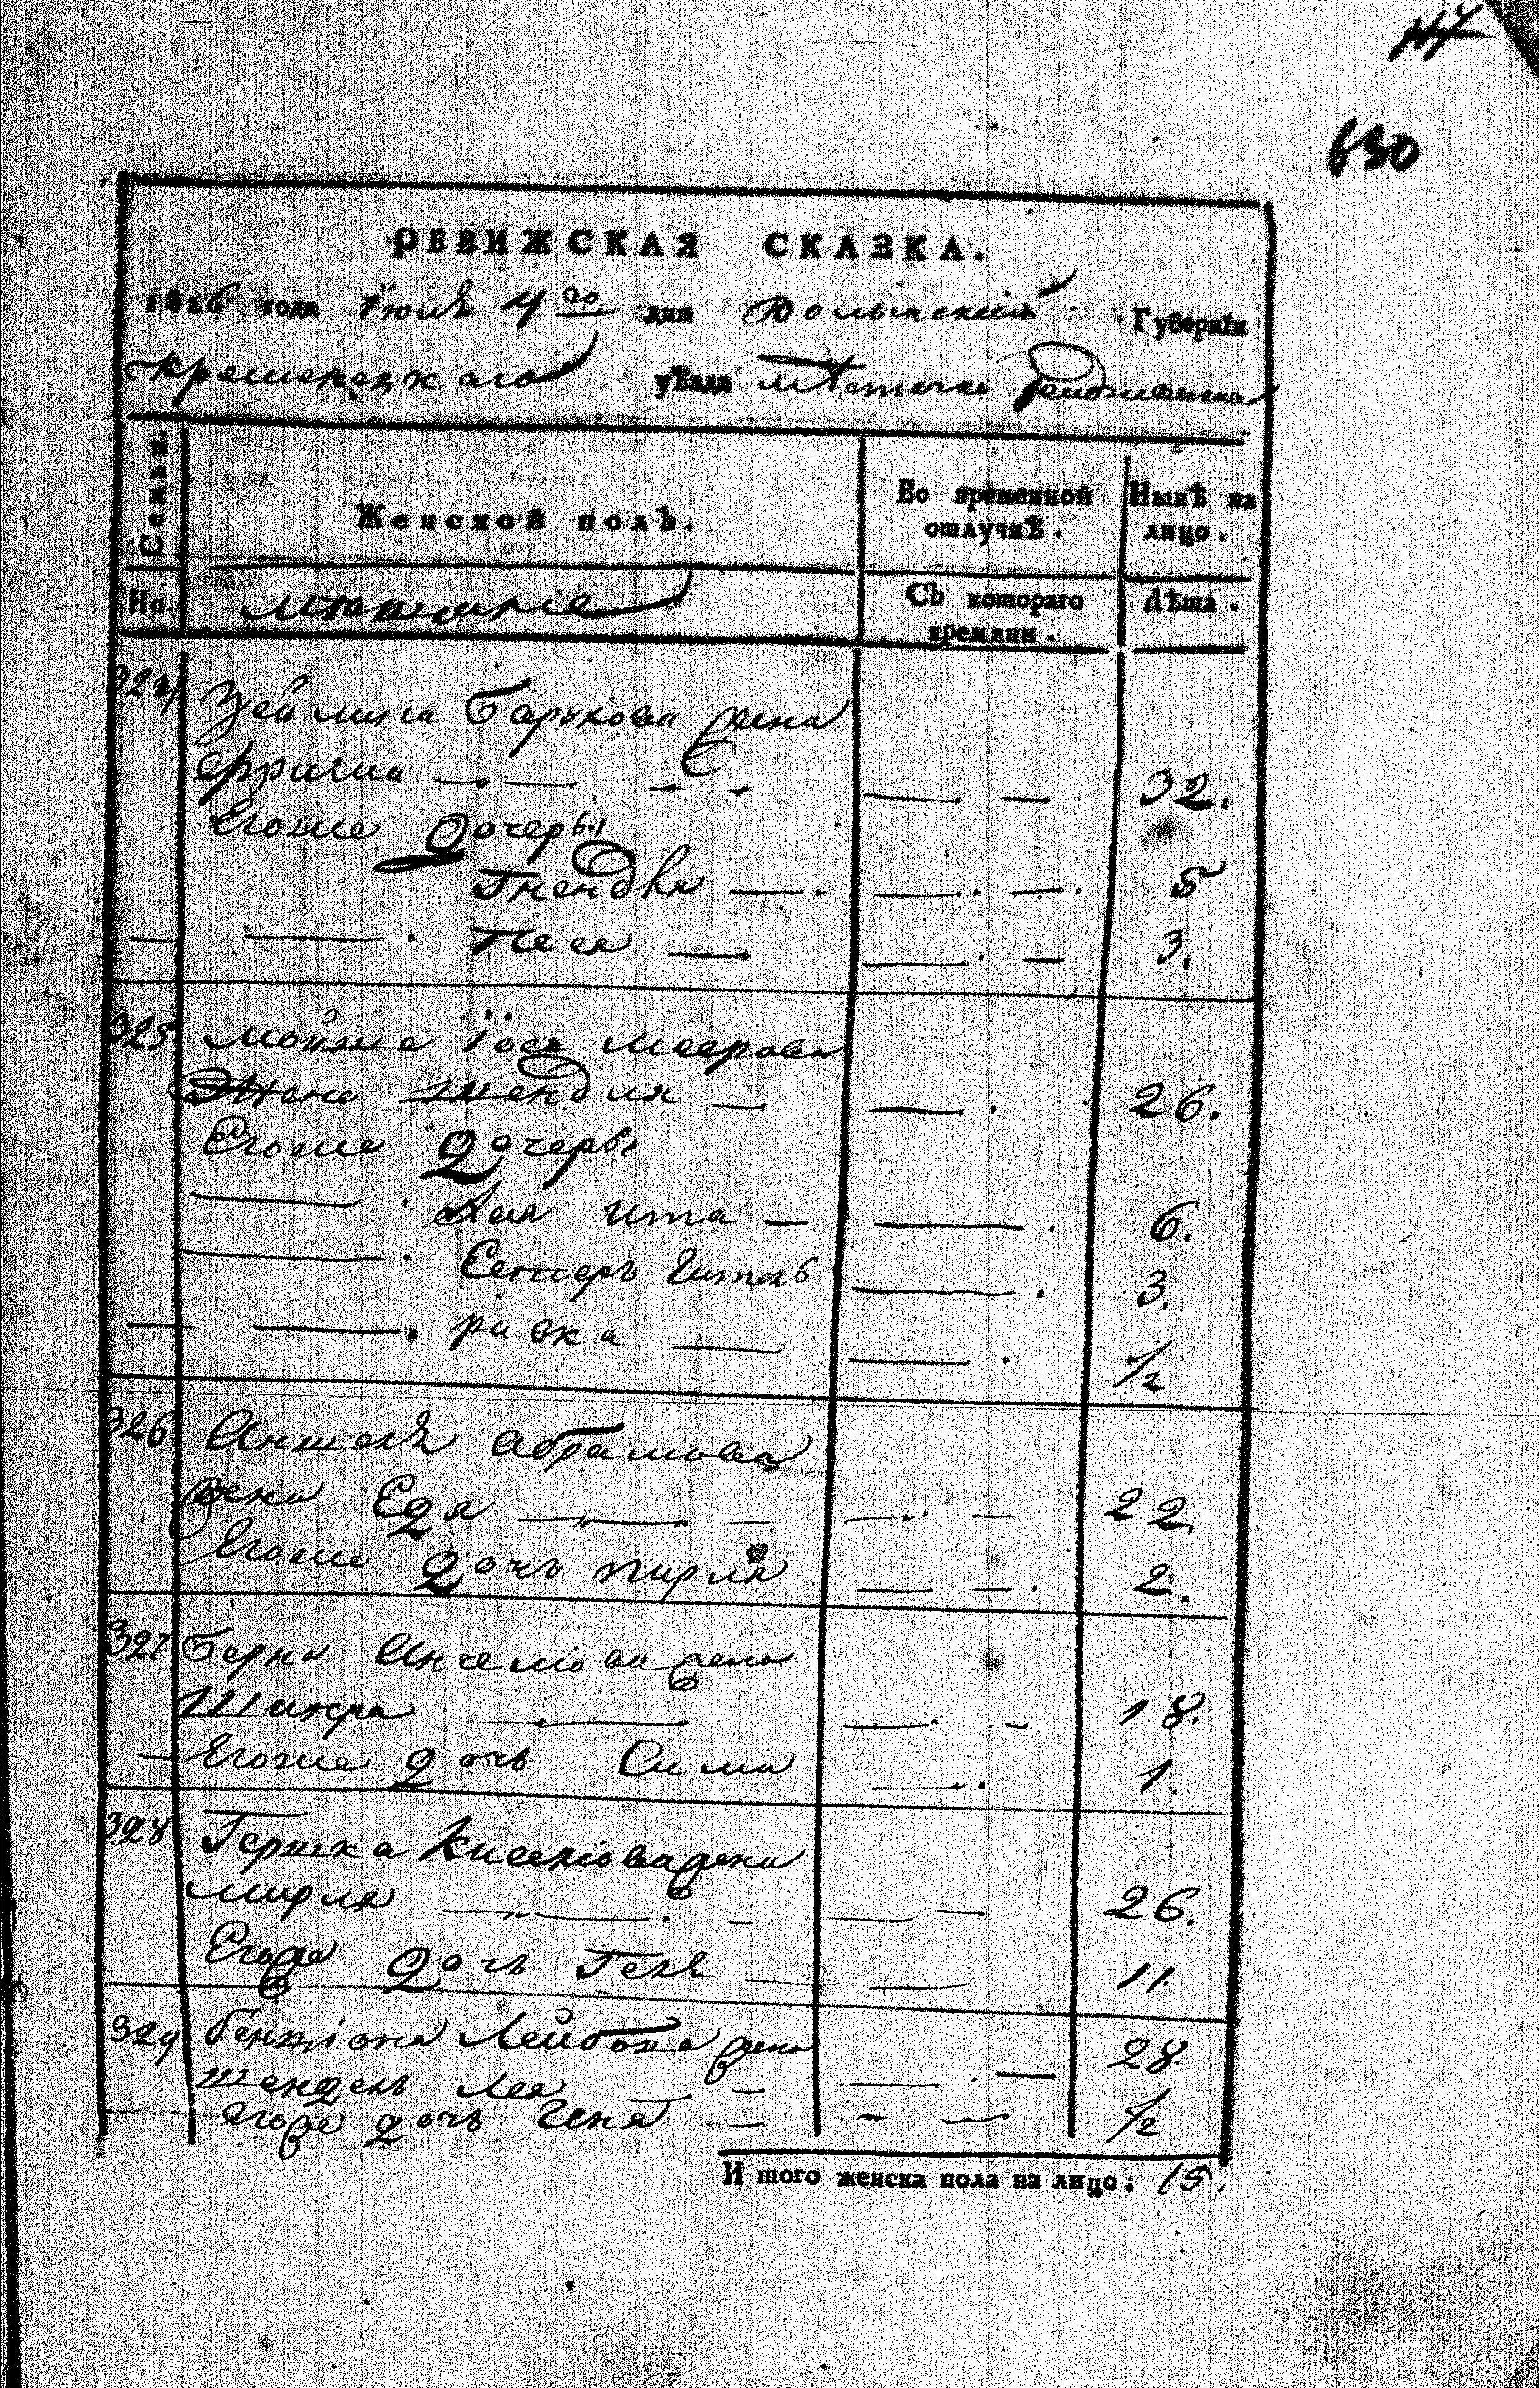 630
РЕВИЖСКАЯ СКАЗКА.
1816 года Июля 4го дня Волынской Губернїи
Кременецкаго уѣзда мѣстечка
Семьи.
Женской полъ.
Во временной отлучкѣ.
Нынѣ на лицо.
Но.
Съ котораго времяни.
Лѣта.
324 Барухова жена
32.
Егоже дочеры
Гнендля 5
Песя 3.
325 Мойше Іося Меерова
жена Шендля 26.
Егоже дочеры
Хая Ита 6.
Естеръ Гитель 3.
ривка 1/2
326 Аншеля Абрамова
жена Едя 22
Егоже дочь пирля 2.
327 Берка жена
Шифра 18.
Егоже дочь Сима 1.
328 Гершка Киселіова жена
мирля 26.
Егоже дочь Геня 11
329 бенціона Лейбова жена 28
шендель лея
Егоже дочь Геня 1/2
И того женска пола на лицо: 15.